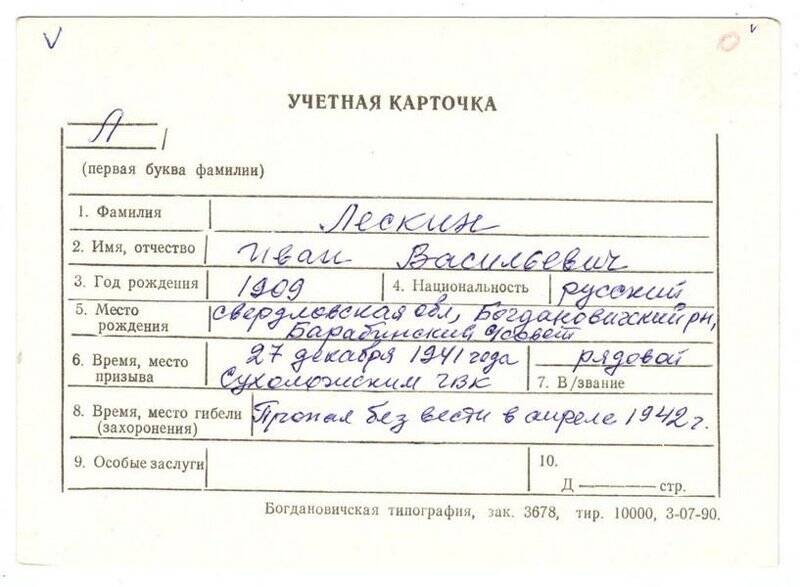 УЧЕТНАЯ КАРТОЧКА
Л
(первая буква фамилии)
1. Фамилия Лескин
2. Имя, отчество Иван Васильевич
3. Год рождения 1909 4. Национальность русский
5. Место рождения свердловская обл, Богдановичский рн,
Барабинский с/совет
6. Время, место призыва 27 декабря 1941 года
Сухоложским ГВК
рядовой
7. В/звание
8. Время, место гибели (захоронения) Пропал без вести в апреле 1942 г.
9. Особые заслуги
10.
Д — стр.
Богдановичская типография, зак. 3678, тир. 10000, 3-07-90.